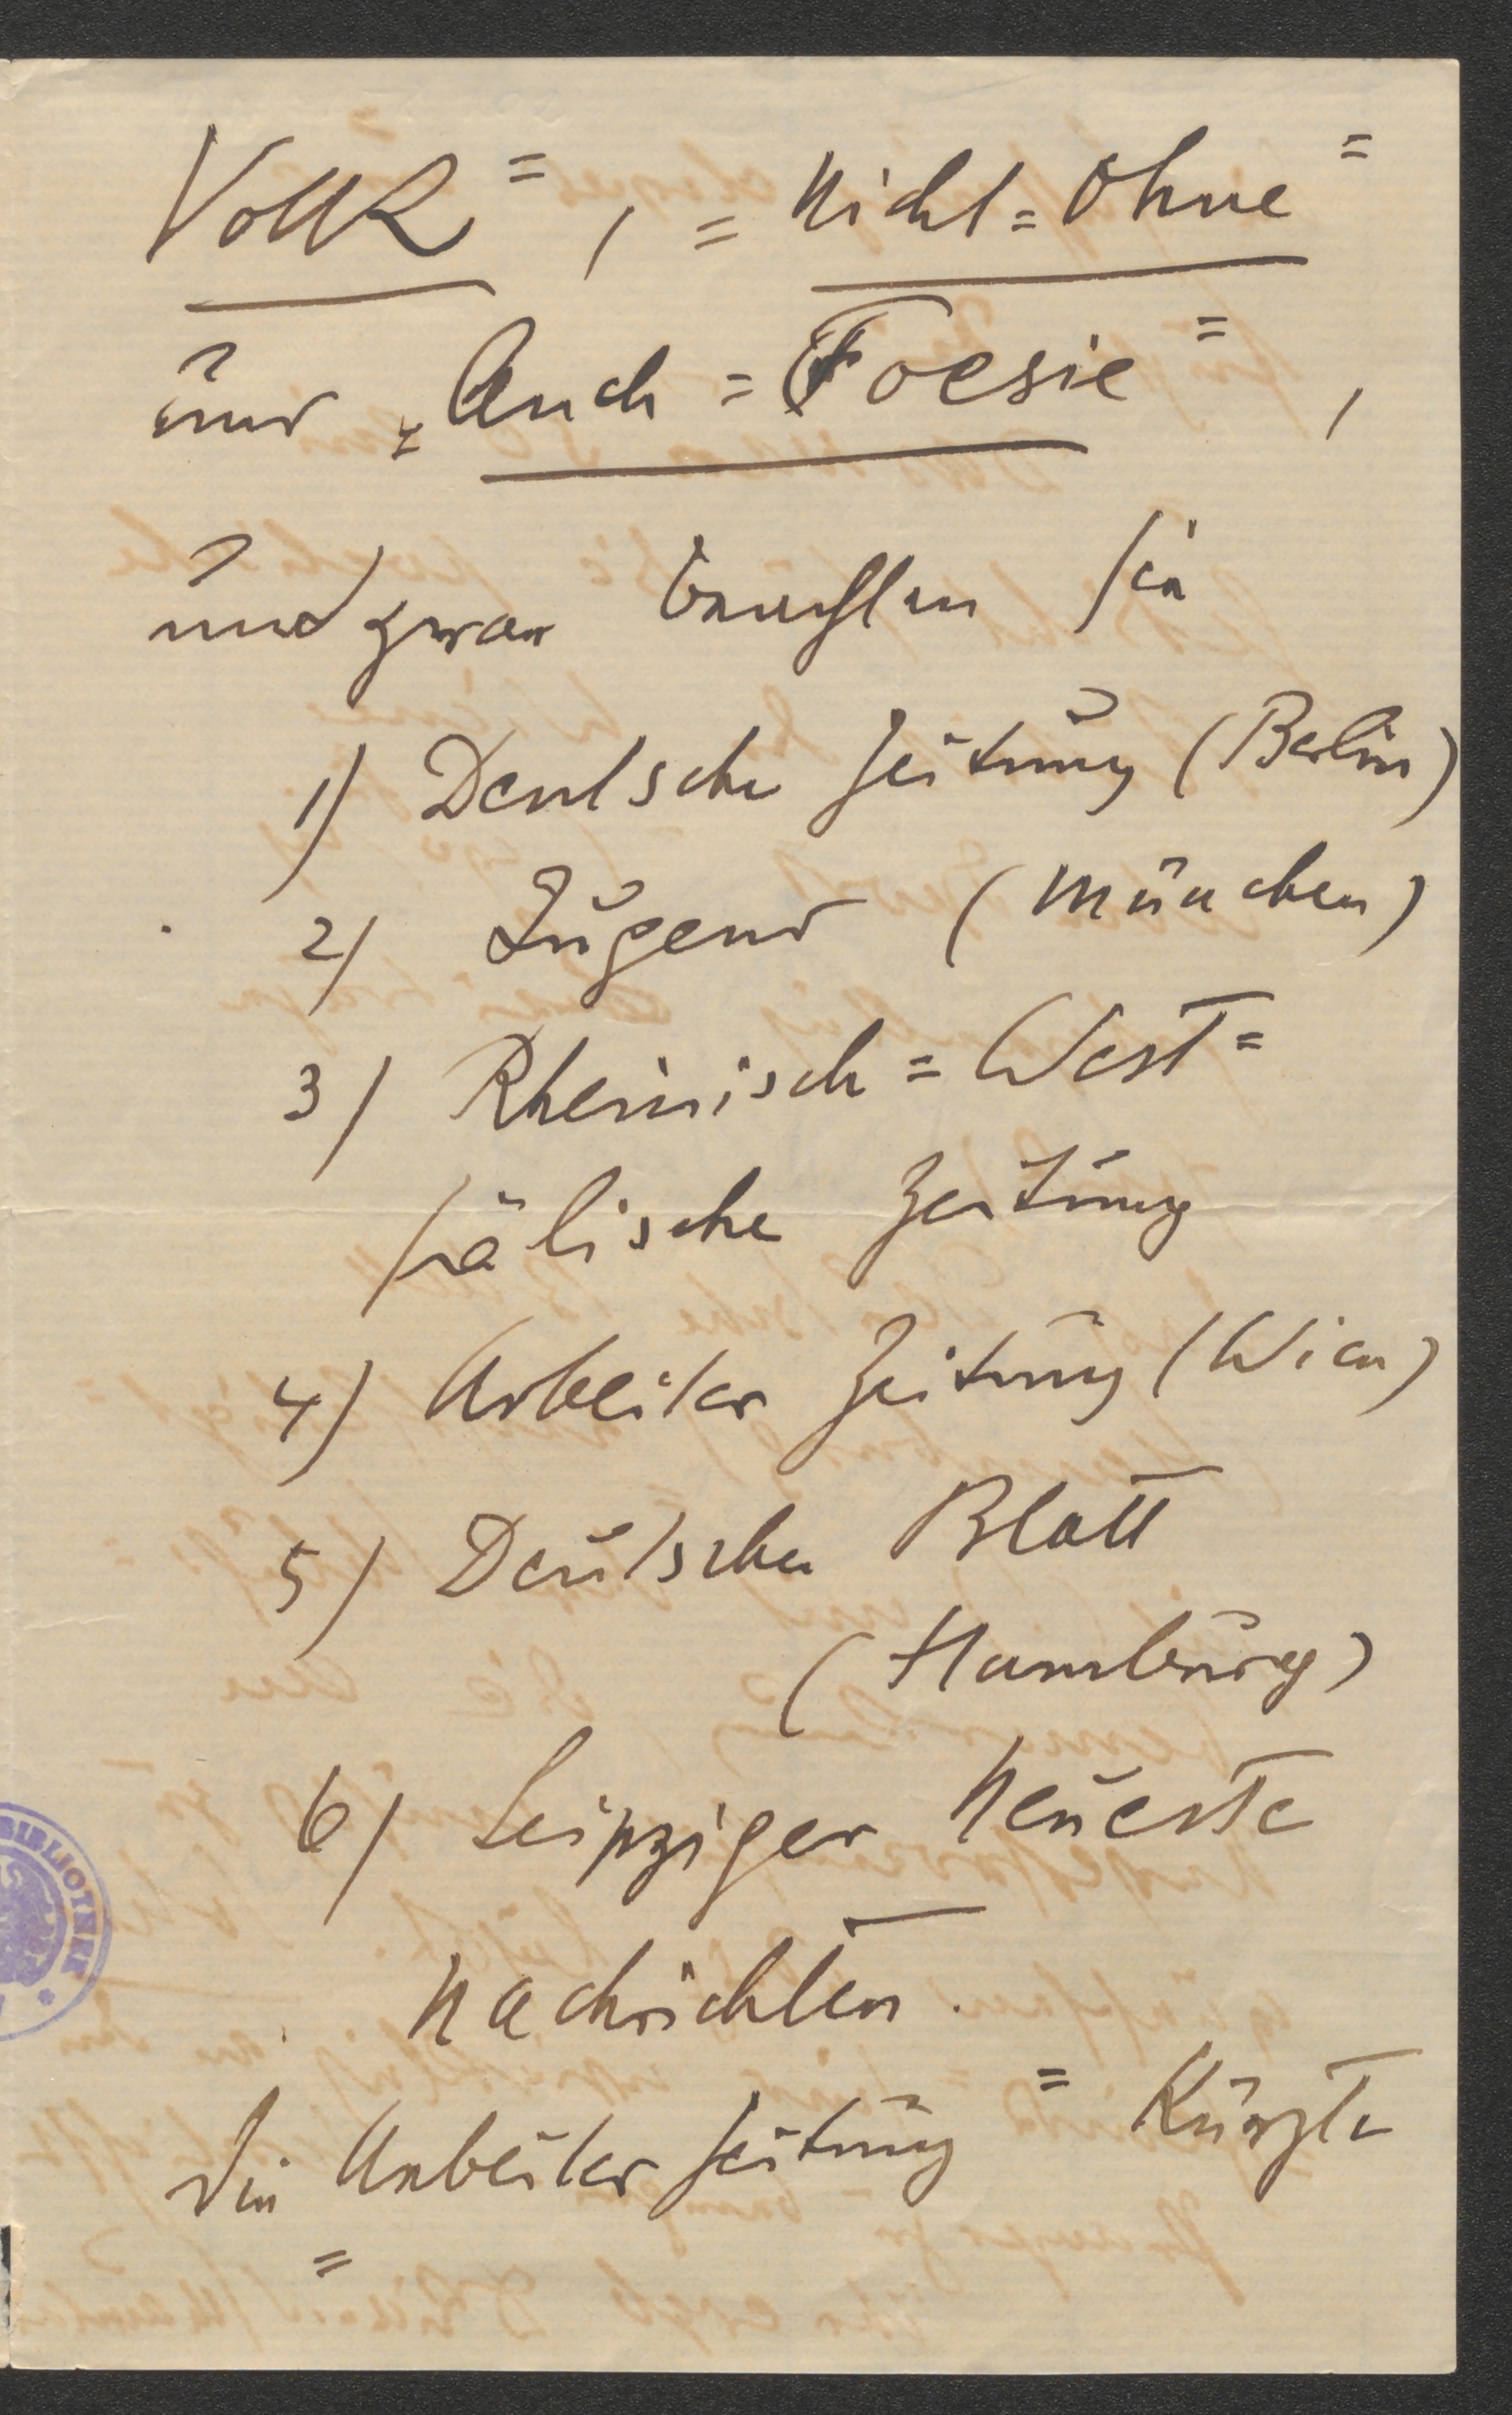 Volk", "Nicht=Ohne"
und "Auch=Poesie",
und zwar brachten sie
1) Deutsche Zeitung (Berlin)
2) Jugend (München)
3) Rheinisch=West=
fälische Zeitung
4) Arbeiter Zeitung (Wien)
5) Deutsches Blatt
(Hamburg)
6) Leipziger Neueste
Nachrichten.
Die "Arbeiter Zeitung" kürzte
BIBLIOTHEK